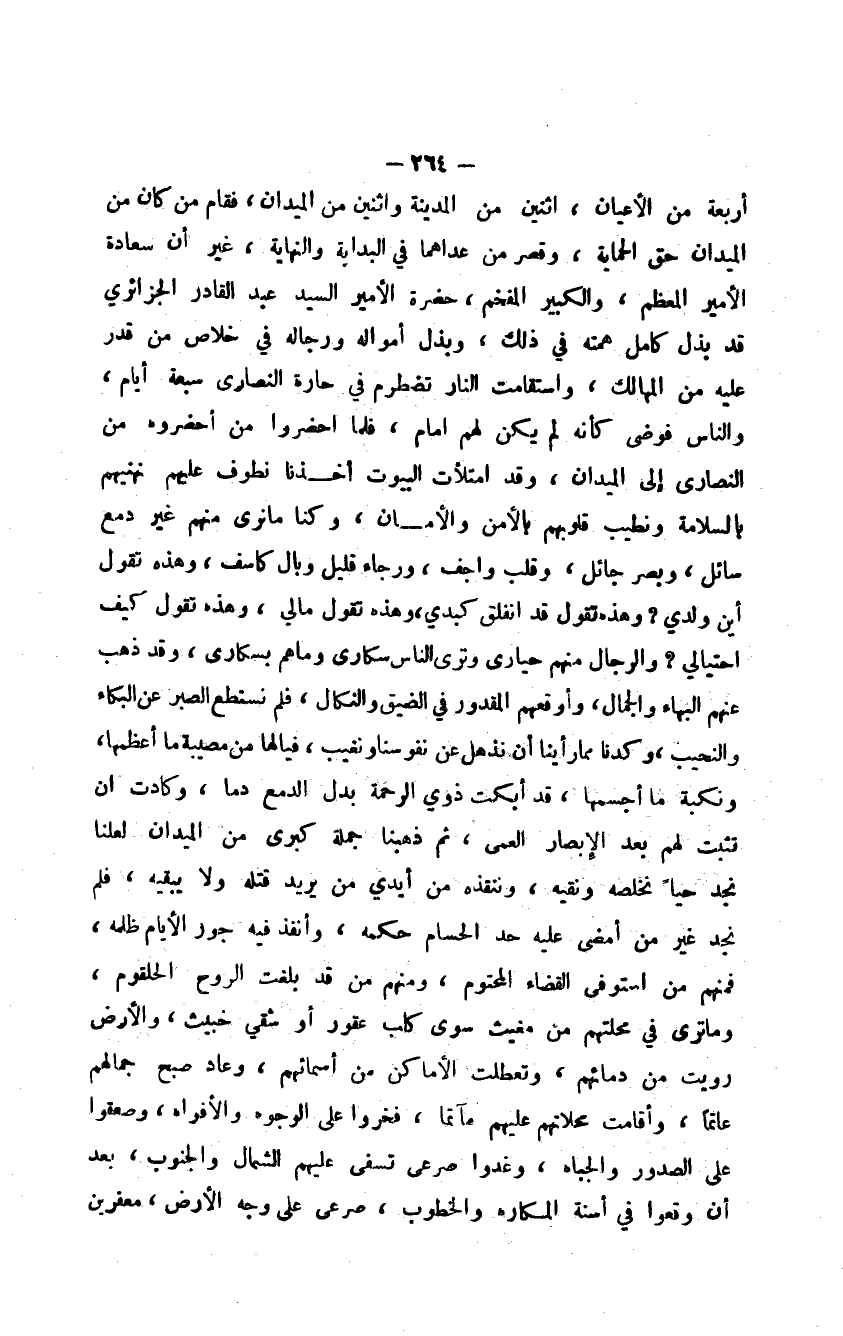 — ٢٦٤ —
أربعة من الأعيان ، اثنين من المدينة واثنين من الميدان ، فقام من كان من
الميدان حق الحماية ، وقصر من عداهما في البداية والنهاية ، غير أن سعادة
الأمير المعظم ، والكبير المفخم ، حضرة الأمير السيد عبد القادر الجزائري
قد بذل كامل همته في ذلك ، وبذل أمواله ورجاله في خلاص من قدر
عليه من المهالك ، واستقامت النار تضطرم في حارة النصارى سبعة أيام ،
والناس فوضى كأنه لم يكن لهم امام ، فلما احضروا من أحضروه من
النصارى إلى الميدان ، وقد امتلأت البيوت أخـــذنا نطوف عليهم نهنيهم
بالسلامة ونطيب قلوبهم بالأمن والأمـــان ، وكنا مانرى منهم غير دمع
سائل ، وبصر جائل ، وقلب واجف ، ورجاء قليل وبال كاسف ، وهذه تقول
أين ولدي ? وهذه تقول قد انفلق كبدي ، وهذه تقول مالي ، وهذه تقول كيف
احتيالي ? والرجال منهم حيارى وترى الناس سكارى وماهم بسكارى ، وقد ذهب
عنهم البهاء والجمال ، وأوقعهم المقدور في الضيق والنكال ، فلم نستطع الصبر عن البكاء
والنحيب ، وكدنا مما رأينا أن نذهل عن نفوسنا ونغيب ، فيالها من مصيبة ما أعظمها ،
ونكبة ما أجسمها ، قد أبكت ذوي الرحمة بدل الدمع دما ، وكادت ان
تثبت لهم بعد الإبصار العمى ، ثم ذهبنا جملة كبرى من الميدان لعلنا
نجد حياً نخلصه ونقيه ، وننقذه من أيدي من يريد قتله ولا يبقيه ، فلم
نجد غير من أمضى عليه حد الحسام حكمه ، وأنفذ فيه جور الأيام ظلمه ،
فمنهم من استوفى القضاء المحتوم ، ومنهم من قد بلغت الروح الحلقوم ،
وماترى في محلتهم من مغيث سوى كلب عقور أو شقي خبيث ، والأرض
رويت من دمائهم ، وتعطلت الأماكن من أسمائهم ، وعاد صبح جمالهم
عاتماً ، وأقامت محلاتهم عليهم مآتما ، فخروا على الوجوه والأفواه ، وصعقوا
على الصدور والجباه ، وغدوا صرعى تسفى عليهم الشمال والجنوب ، بعد
أن وقعوا في أسنة المكاره والخطوب ، صرعى على وجه الأرض ، معفرين